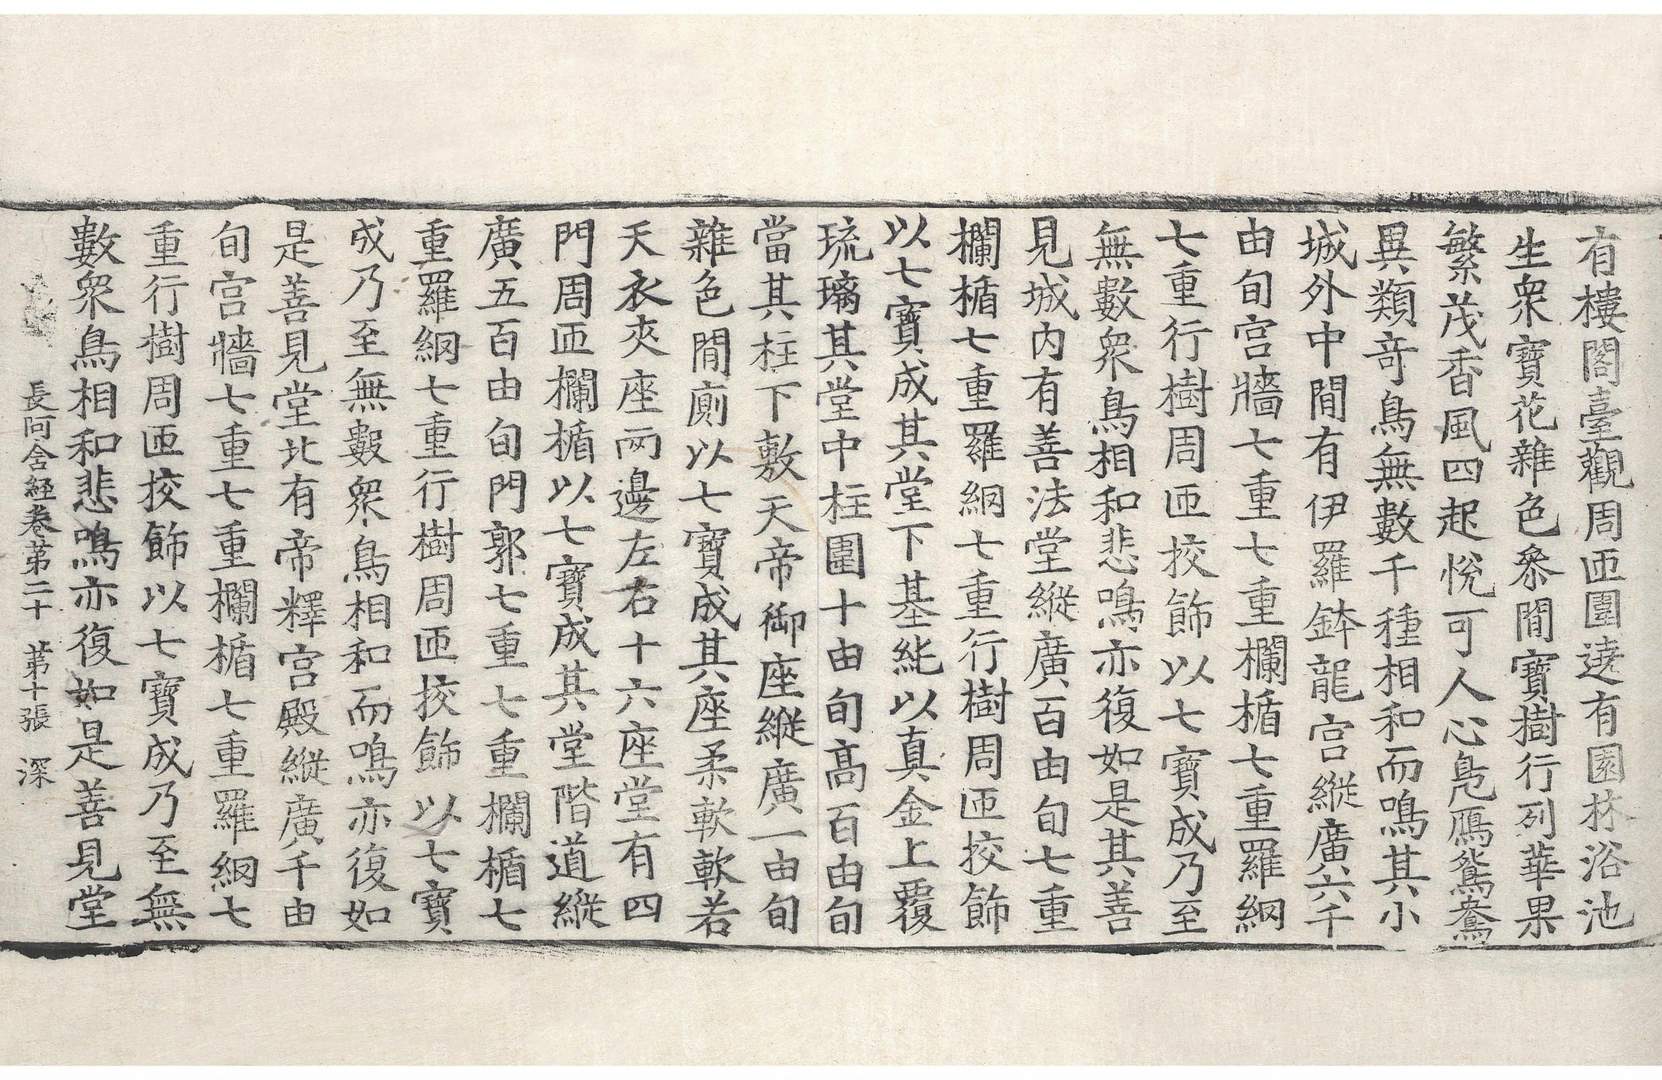 有樓閣臺觀周匝圍遶有園林浴池
生眾寶花雜色叅間寶樹行列華果
繁茂香風四起悅可人心鳧鴈鴛鴦
異類奇鳥無數千種相和而鳴其小
城外中間有伊羅鉢龍宮縱廣六千
由旬宮牆七重七重欄楯七重羅網
七重行樹周匝挍飾以七寶成乃至
無數眾鳥相和悲鳴亦復如是其善
見城內有善法堂縱廣百由旬七重
欄楯七重羅網七重行樹周匝挍飾
以七寶成其堂下基純以真金上覆
琉璃其堂中柱圍十由旬高百由旬
當其柱下敷天帝御座縱廣一由旬
雜色間廁以七寶成其座柔軟軟若
天衣夾座兩邊左右十六座堂有四
門周匝欄楯以七寶成其堂階道縱
廣五百由旬門郭七重七重欄楯七
重羅網七重行樹周匝挍飾以七寶
成乃至無數眾鳥相和而鳴亦復如
是善見堂北有帝釋宮殿縱廣千由
旬宮牆七重七重欄楯七重羅網七
重行樹周匝挍飾以七寶成乃至無
數眾鳥相和悲鳴亦復如是善見堂
長阿含經卷第二十 第十張 深